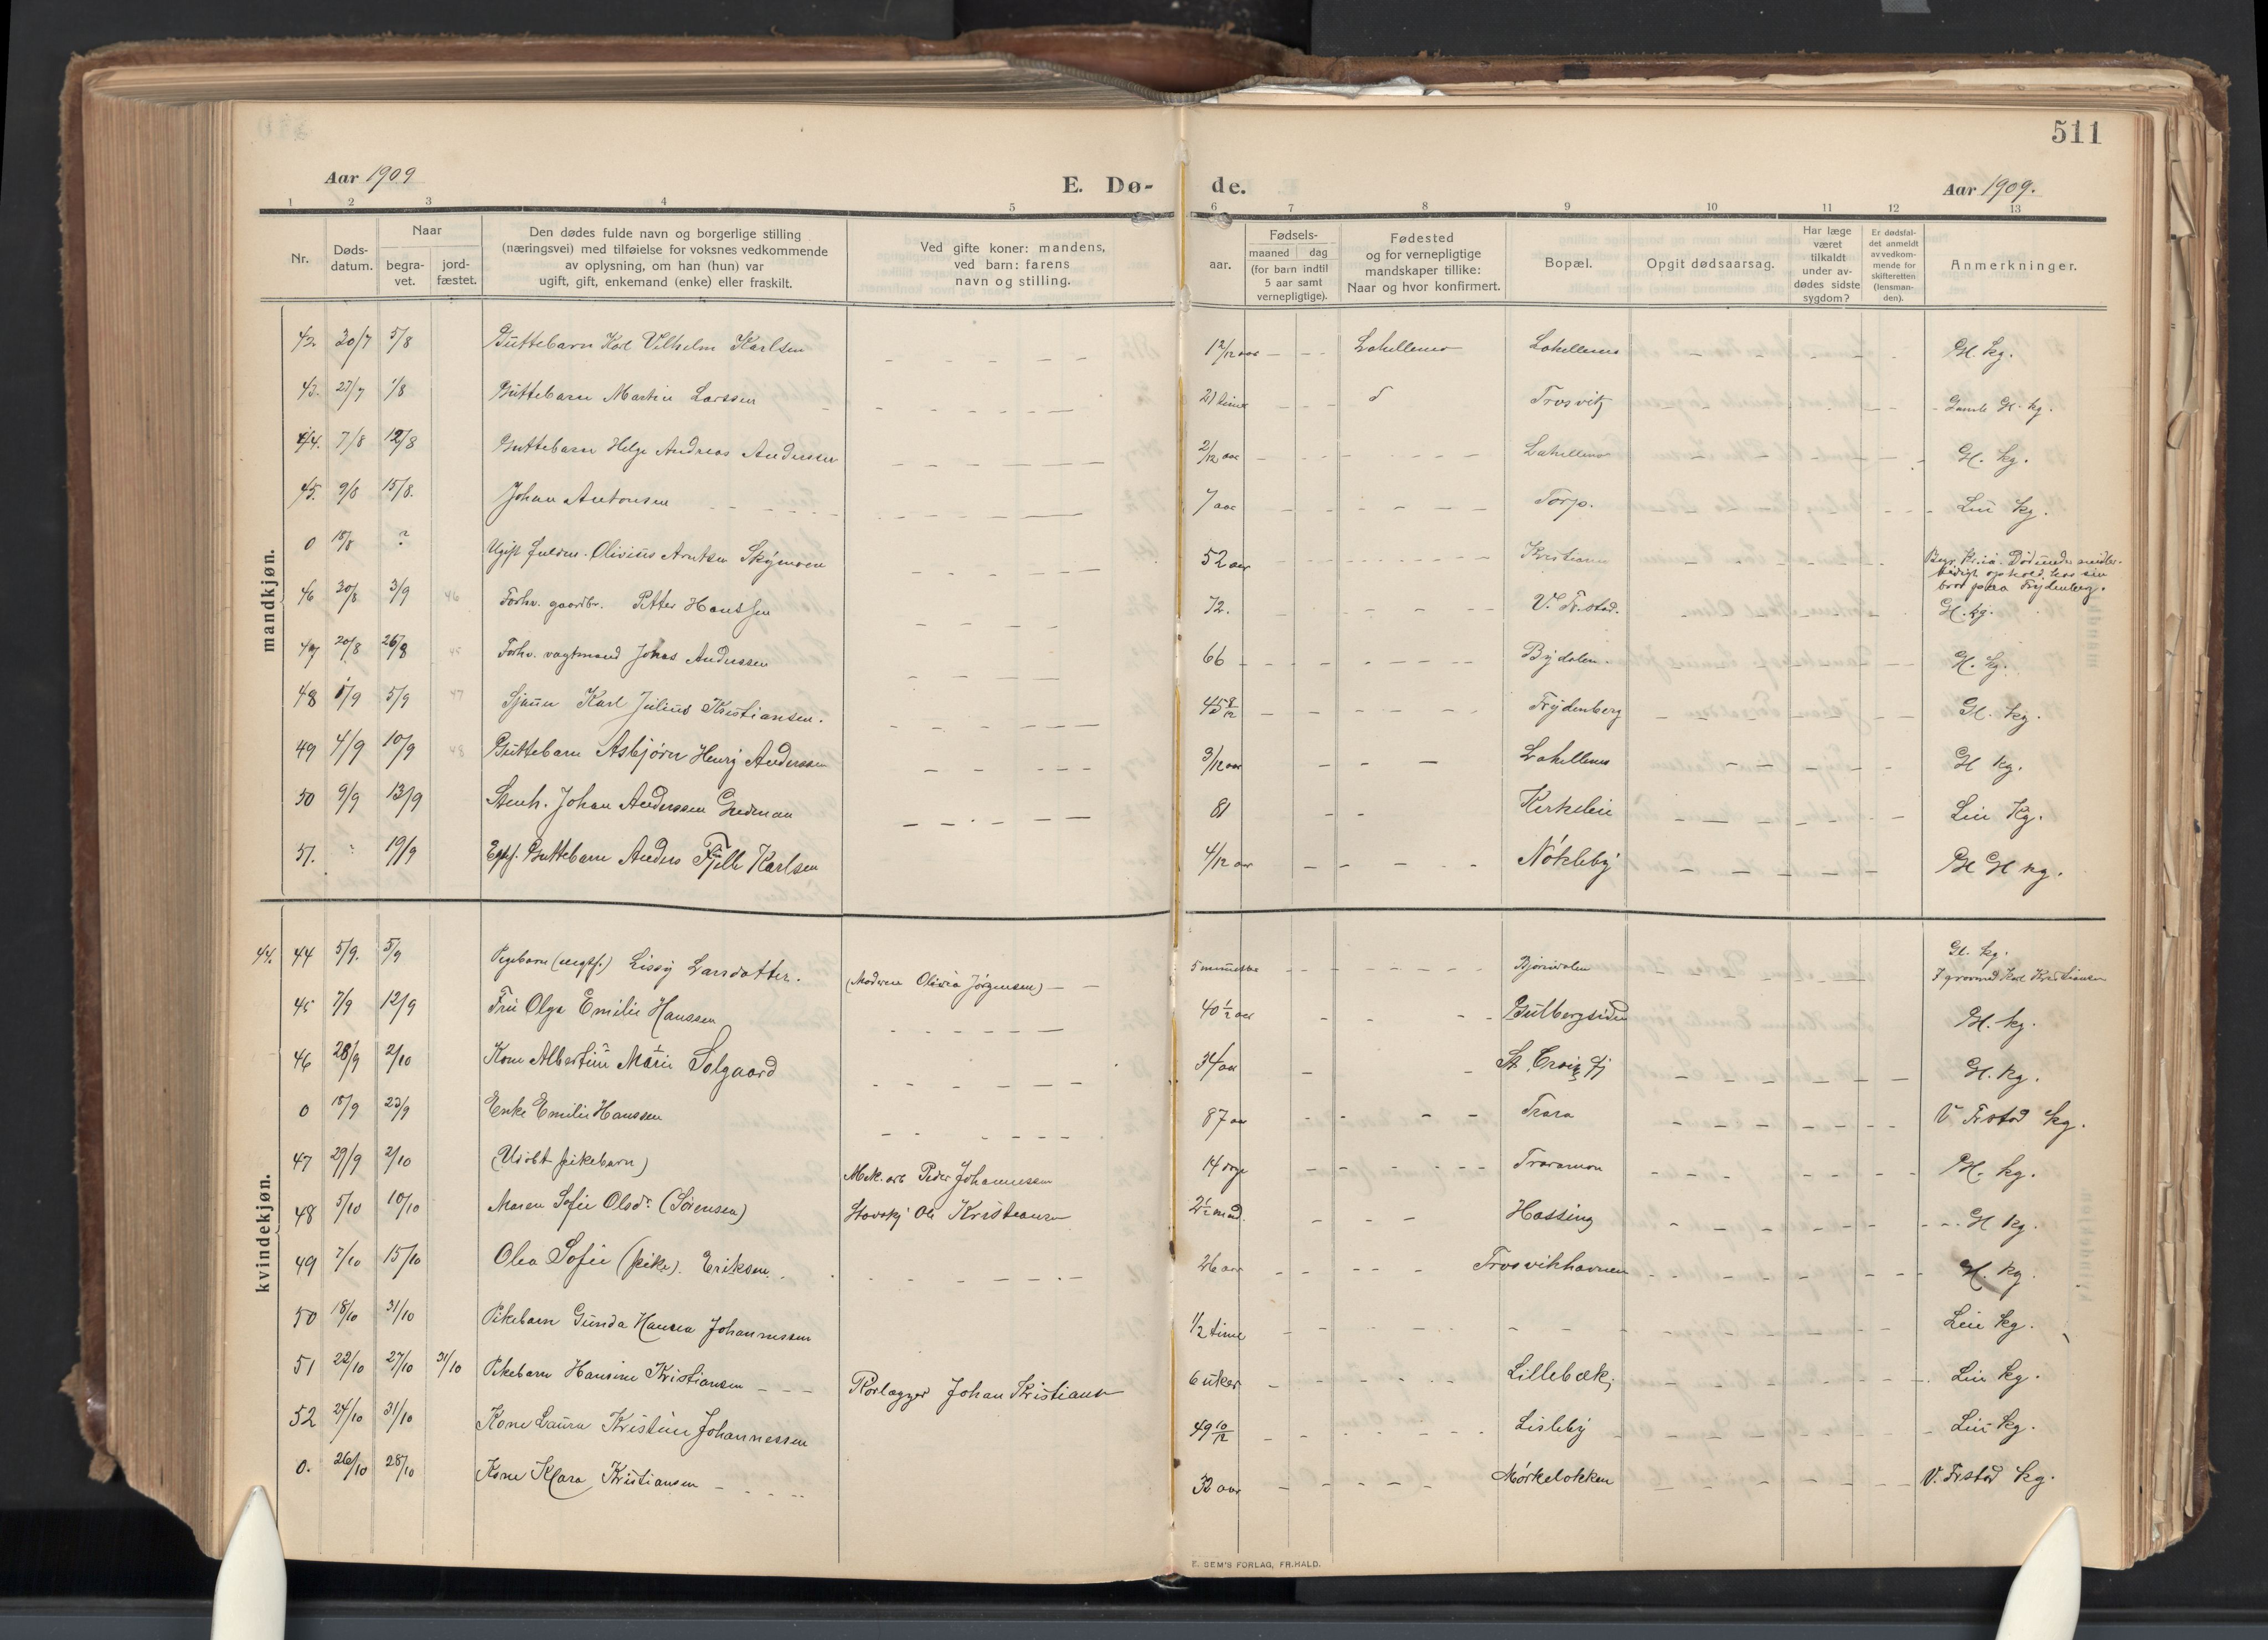 511
Aar 1909
E. Dø-
de.
Aar 1909.
1 2 3 4 5 6 7 8 9 10 11 12 13
Nr.
Døds-
datum.
Naar
begra-
vet.
jord-
fæstet.
Den dødes fulde navn og borgerlige stilling
(næringsvei) med tilføielse for voksnes vedkommende
av oplysning, om han (hun) var
ugift, gift, enkemand (enke) eller fraskilt.
Ved gifte koner: mandens,
ved barn: farens
navn og stilling.
aar.
Fødsels-
maaned dag
(for barn indtil
5 aar samt
vernepligtige).
Fødested
og for vernepligtige
mandskaper tillike:
Naar og hvor konfirmert.
Bopæl.
Opgit dødsaarsag.
Har læge
været
tilkaldt
under av-
dødes sidste
sygdom?
Er dødsfal-
det anmeldt
av vedkom-
mende for
skifteretten
(lensman-
den).
Anmerkninger.
mandkjøn.
42. 30/7 5/8 Guttebarn Karl Vilhelm Karlsen 1 2/12 aar Lahellemo Lahellemo Gl. kg.
43. 27/7 1/8 Guttebarn Martin Larssen 21 time Trosvik Gamle Gl. kg.
44. 7/8 12/8 Guttebarn Helge Andreas Anderssen 2/12 aar Lahellemo Gl. kg.
45. 9/8 15/8. Johan Antonsen 7 aar Torp. Lui kg.
0 18/8 ? Ugift Olivius Arntsen 52 aar Kristiania Død under midler-
tidigt ophold hos sin
bror paa Frydenberg.
46 30/8 3/9 46 Forhv. gaardbr. Petter Hanssen 72. V. Fr.stad. Gl. kg.
47 20/8 26/8 45 Forhv. vagtmand Johas Anderssen 66 Bydalen. Gl. kg.
48 1/9 5/9 47 Sjauer Karl Julius Kristiansen. 45 8/12 Frydenberg Gl. kg.
49 4/9 10/9 48 Guttebarn Asbjørn Henry Anderssen 3/12 aar Lahellemo Gl kg.
50 9/9 13/9 Stenh. Johan Anderssen 81 Kirkelie Lui Kg.
51. 19/9 Guttebarn Anders Karlsen 4/12 aar Nøkleby Gl kg.
kvindekjøn.
44. 44 5/9. 5/9 Pigebarn (uegtf.) Lissy Larsdotter. (Moderen Olivia Jørgensen) 5 minutter Gl. kg.
I grav med Karl Kristiansen
45 7/9 12/9 Fru Olga Emilie Hanssen 40 1/2 aar Gulbergsiden Gl. kg.
46 28/9 2/10 Kone Albertine Marie Solgaard 34 aar St. Croix Gl. kg.
0 18/9 23/9 Enke Emilie Hanssen 87 aar Trara V Frstad kg.
47 29/9 2/10 (Udøbt pikebarn) Mek. arb Peder Johannessen 14 dage Traramoen Gl. kg.
48 5/10 10/10 Maren Sofie Olsdr (Sørensen) Ole Kristiansen 2 1/2 mnd. Hassing Gl kg.
49 7/10 15/10 Olea Sofie (pike). Eriksen. 26 aar Trosvikhavnen Gl. kg.
50 18/10 31/10 Pikebarn Gunda Hansea Johannessen 1/2 time Lui kg.
51 22/10 27/10 31/10 Pikebarn Hansine Kristiansen Rørlægger Johan Kristiansen 6 uker Lillebæk Lui kg.
52 24/10 31/10 Kone Laura Kristine Johannessen 49 10/12 Lisleby Lui kg.
0. 26/10 28/10 Kone Klara Kristiansen 32 aar Mørkeløkken V. Frstad kg.
E. SEM'S FORLAG, FR.HALD.